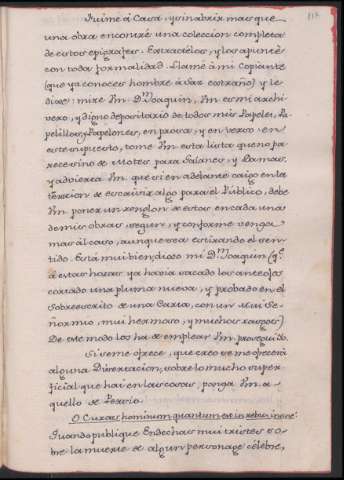 Fuime á Casa, y sin abrir mas que
una obra encontré una coleccion completa
de estos epigrafes. Extractélos, y los apunté
con toda formalidad. Llamé á mi Copiante
(que ya conocen hombre á vaz estraño) y le
dixe: mire Vm. Dn. Joaquin, Vm. es mi archi-
vero, y digno depositario de todos mis Papeles, Pa-
pelillos, y Papelones, en prosa, y en verso. en
este supuesto, tome Vm. esta lista que no pa-
rece sino de Motes para Galanes, y Damas,
y advierta Vm. que si en adelante caigo en la
tentacion de escrivir algo para el Público, debe
Vm. poner un renglon de estos en cada una
de mis obras, segun, y conforme venga
mas al caso, aunque sea estirando el sen-
tido. Está mui bien, dixo mi Dn. Joaquin (qe.
á estas horas ya havia sacado los anteojos
cortado una pluma nueva, y probado en el
Sobreescrito de una Carta, con un Mui Se-
ñor mio, mui hermoso, y muchos rasgos)
De este modo los ha de emplear Vm. proseguí.
Si se me ofrece, que creo se me ofrecerá
alguna Disertacion, sobre lo mucho super-
ficial que hai en las cosas, ponga Vm. a-
quello de Persio.
O Curas hominum quantum est in rebus inane:
Quando publique Endechas mui tristes so-
bre la muerte de algun personage célebre,